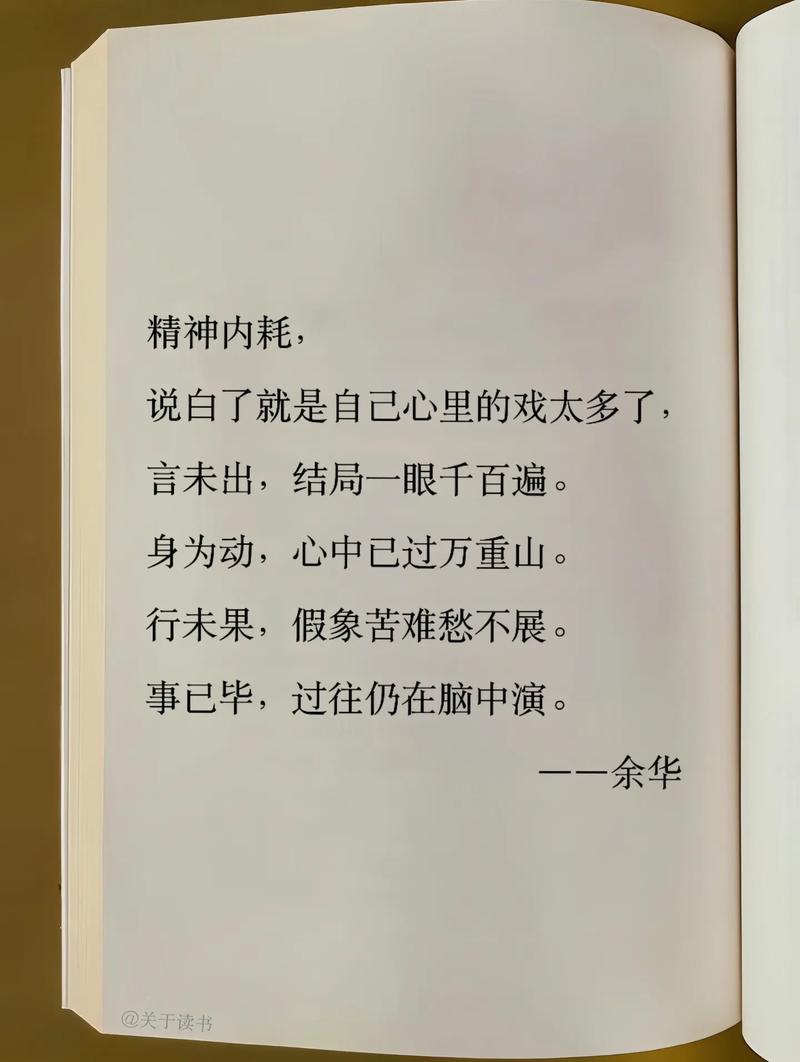 精神内耗，
说白了就是自己心里的戏太多了，
言未出，结局一眼千百遍。
身为动，心中已过万重山。
行未果，假象苦难愁不展。
事已毕，过往仍在脑中演。
——余华
@关于读书